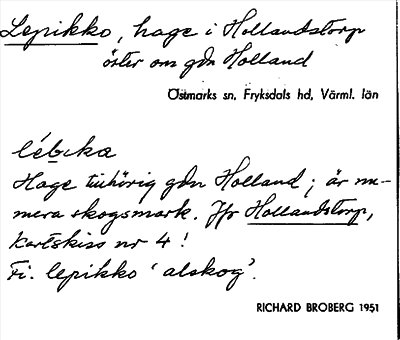 Lepikko, hage i Hollandstorp
öster om gdn Holland
Östmarks sn, Fryksdals hd, Värml. län
lébɩka
Hage tillhörig gdn Holland; är nu-
mera skogsmark. Jfr Hollandstorp,
Kartskiss nr 4!
Fi. lepikko 'alskog'.
RICHARD BROBERG 1951